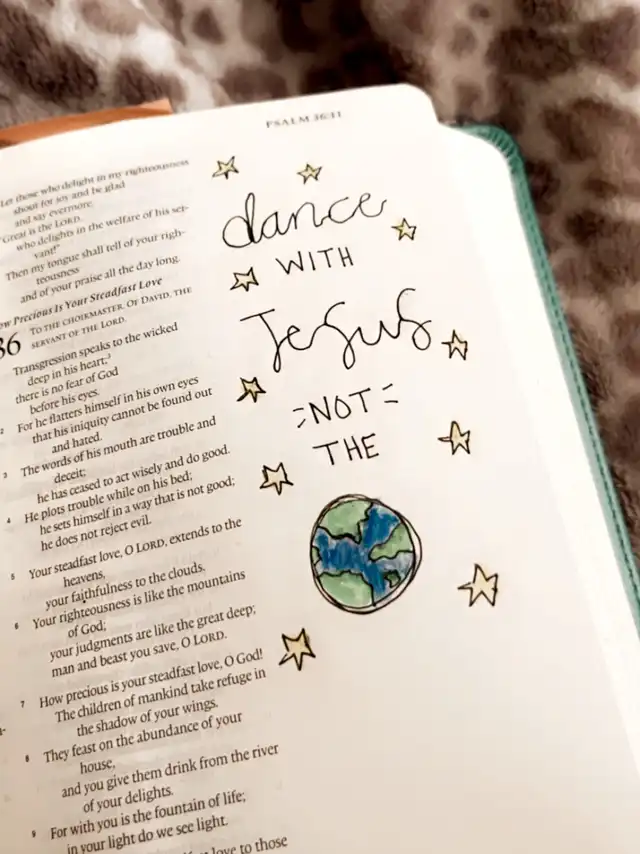 PSALM 36:11
Let those who delight in my righteousness
shout for joy and be glad
and say evermore,
"Great is the LORD,
who delights in the welfare of his ser-
vant!"
Then my tongue shall tell of your righ-
teousness
and of your praise all the day long.
ow Precious Is Your Steadfast Love
36 TO THE CHOIRMASTER. OF DAVID, THE
SERVANT OF THE LORD.
Transgression speaks to the wicked
deep in his heart;
there is no fear of God
before his eyes.
2 For he flatters himself in his own eyes
that his iniquity cannot be found out
and hated.
3 The words of his mouth are trouble and
deceit;
he has ceased to act wisely and do good.
4 He plots trouble while on his bed;
he sets himself in a way that is not good;
he does not reject evil.
5 Your steadfast love, O LORD, extends to the
heavens,
your faithfulness to the clouds.
6 Your righteousness is like the mountains
of God;
your judgments are like the great deep;
man and beast you save, O LORD.
7 How precious is your steadfast love, O God!
The children of mankind take refuge in
the shadow of your wings.
8 They feast on the abundance of your
house,
and you give them drink from the river
of your delights.
9 For with you is the fountain of life;
in your light do we see light.
love to those
dance
WITH
Jesus
NOT
THE